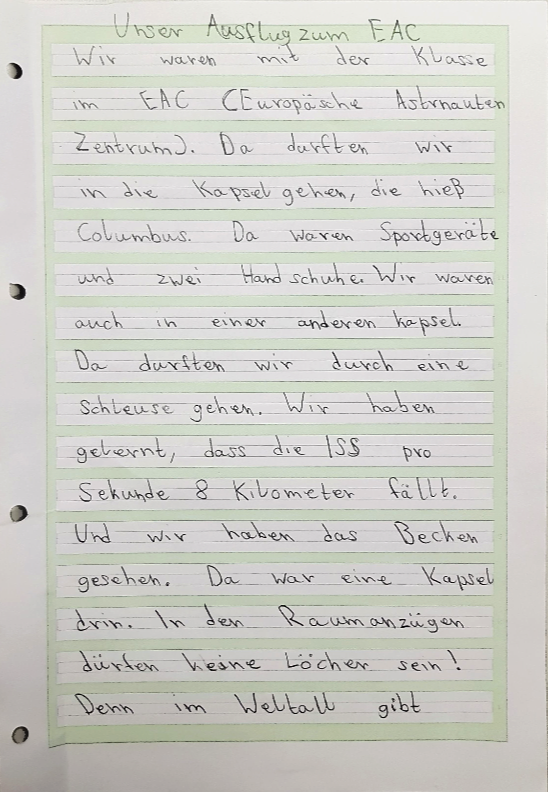 Unser Ausflug zum EAC
Wir waren mit der Klasse
im EAC (Europäsche Astrnauten
Zentrum). Da durften wir
in die Kapsel gehen, die hieß
Columbus. Da waren Sportgeräte
und zwei Handschuhe. Wir waren
auch in einer anderen Kapsel.
Da durften wir durch eine
Schleuse gehen. Wir haben
gelernt, dass die ISS pro
Sekunde 8 Kilometer fällt.
Und wir haben das Becken
gesehen. Da war eine Kapsel
drin. In den Raumanzügen
dürfen keine Löcher sein!
Denn im Weltall gibt